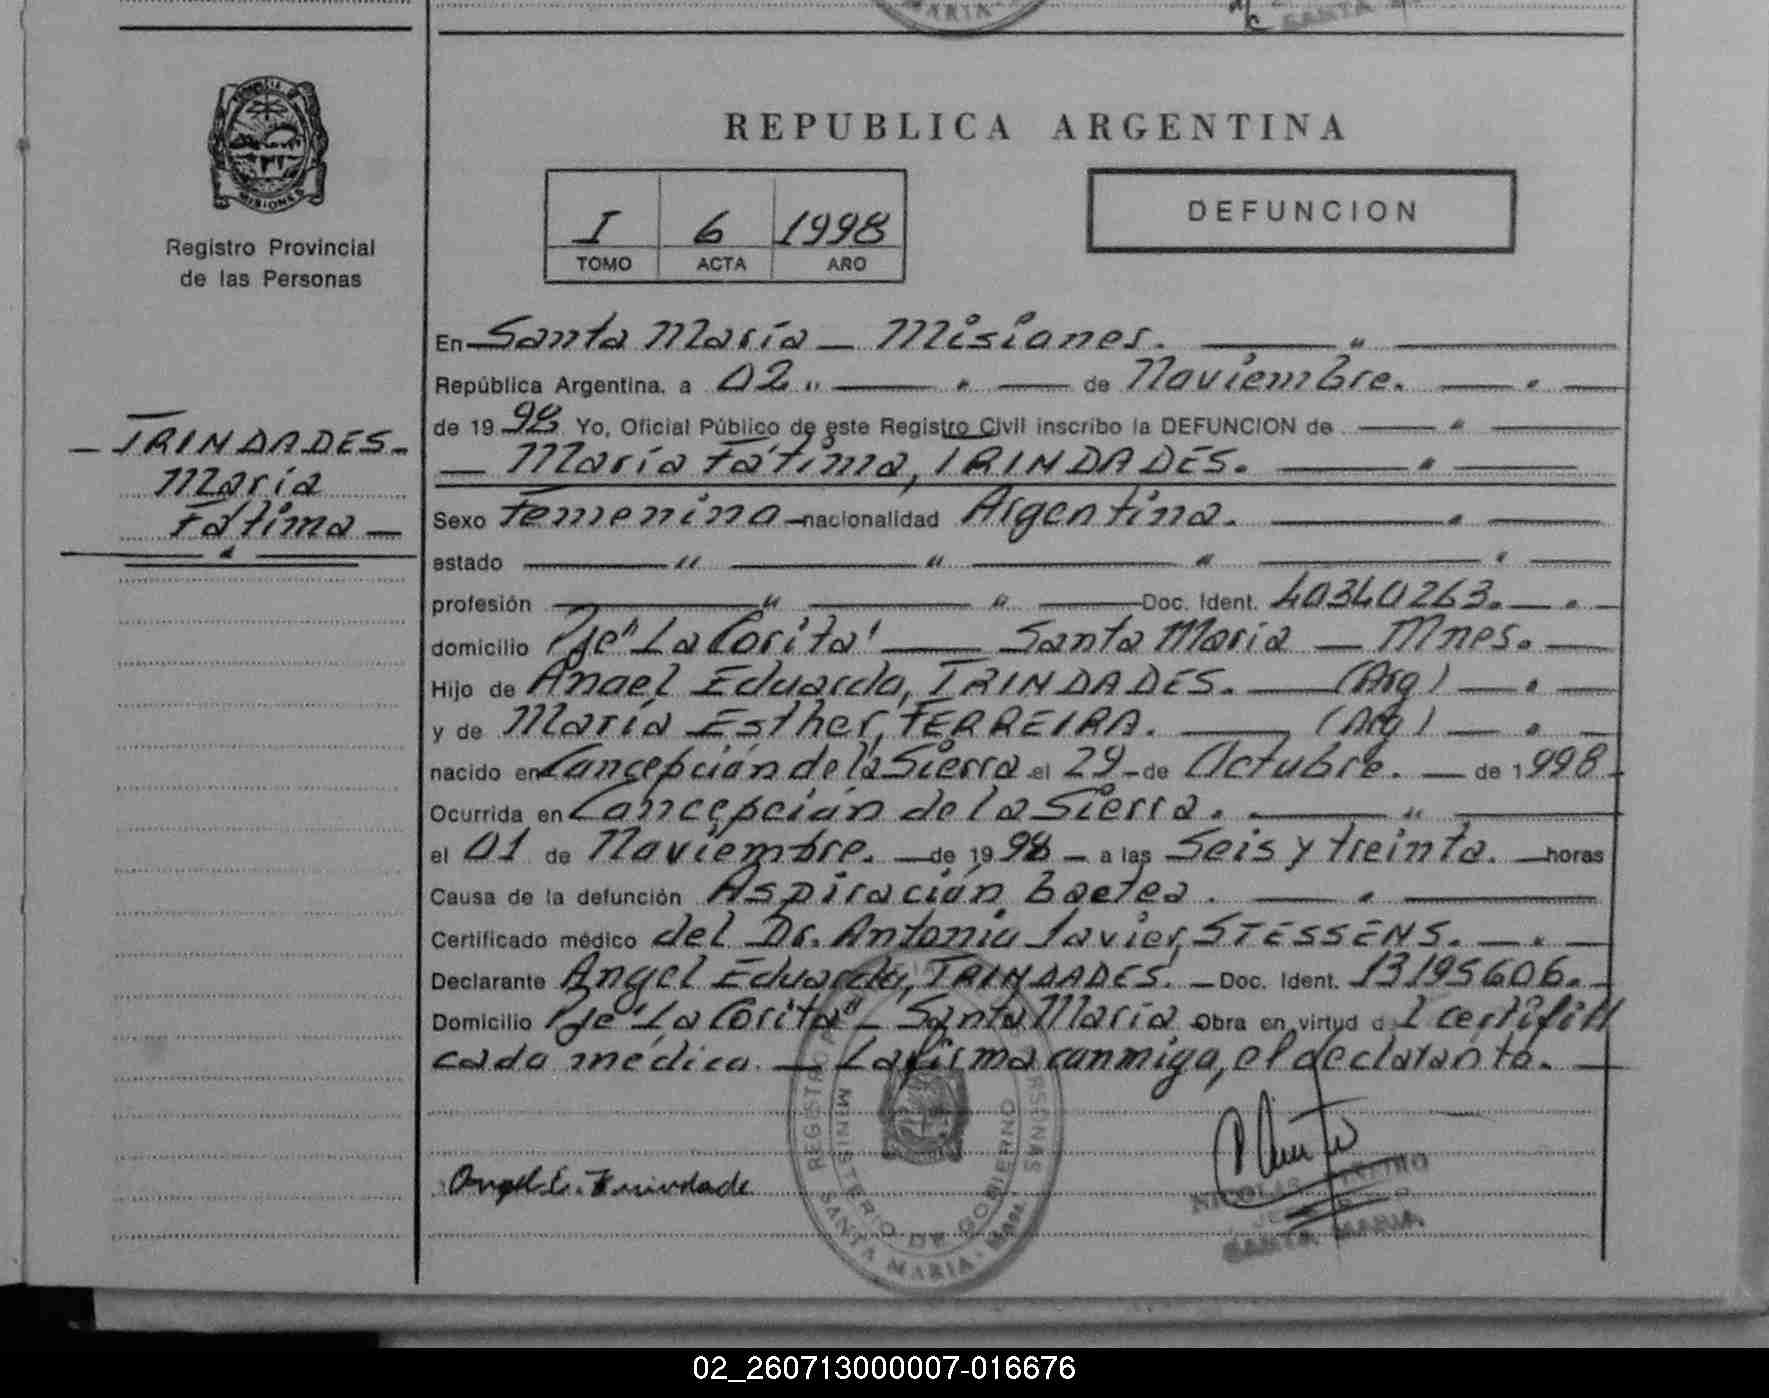 MARIA
SANTA
MISIONES
Registro Provincial
de las Personas
REPUBLICA ARGENTINA
I 6 1998
TOMO ACTA AÑO
DEFUNCION
TRINDADES.
María
Fátima
En Santa María - Misiones.
República Argentina, a 02 de Noviembre.
de 19 98 Yo, Oficial Público de este Registro Civil inscribo la DEFUNCION de
María Fátima, TRINDADES.
Sexo Femenino nacionalidad Argentina.
estado
profesión Doc. Ident. 40340263.
domicilio Pje "La Corita" Santa María - Mnes.
Hijo de Angel Eduardo, TRINDADES. (Arg)
y de María Esther, FERREIRA. (Arg)
nacido en Concepción de la Sierra el 29 de Octubre. de 1998
Ocurrida en Concepción de la Sierra.
el 01 de Noviembre. de 19 98 a las Seis y treinta. horas
Causa de la defunción Aspiración
Certificado médico del Dr. Antonio Javier, STESSENS.
Declarante Angel Eduardo, TRINDADES. Doc. Ident. 13195606.
Domicilio Pje "La Corita" - Santa María Obra en virtud del certifi
cado médico. La firma conmigo, el declarante.
Angel E. Trindade
REGISTRO PERSONAS
MINISTERIO DE GOBIERNO
SANTA MARIA
NICOLAS
SANTA MARIA
02_260713000007-016676